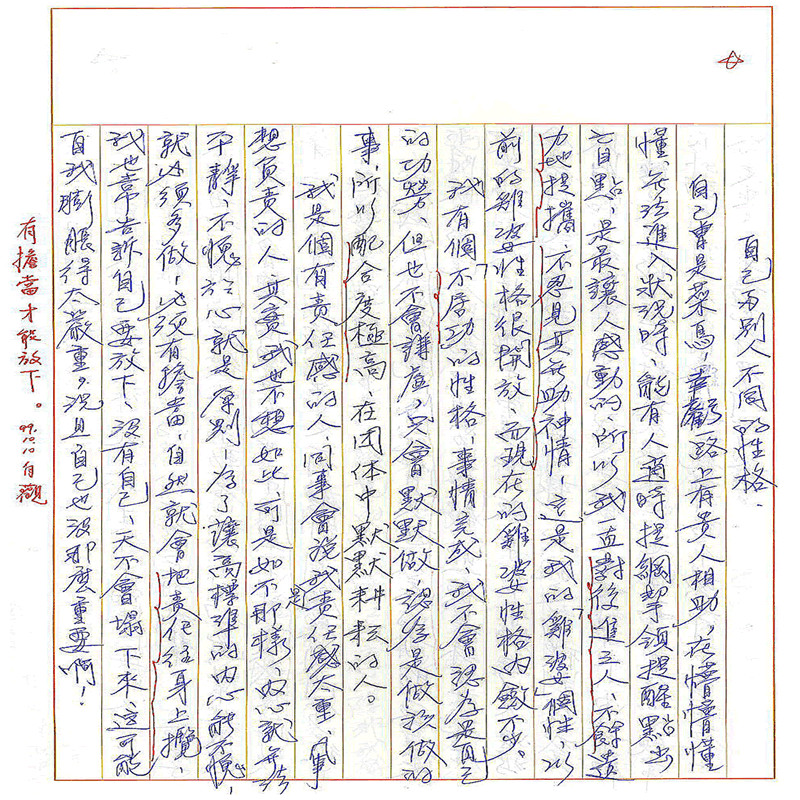 自己與別人不同的性格.
自己曾是菜鳥,幸虧一路上有貴人相助。在懵懵懂
懂無法進入狀況時、能有人適時提綱挈領提醒點出
盲點,是最讓人感動的、所以我一直對後進之人、不餘遺
力地提攜、不忍見其無助神情,這是我的「雞婆」個性,以
前的雞婆性格很開放、而現在的雞婆性格內斂不少。
我有個不居功的性格,事情完成、我不會認為是自己
的功勞、但也不會謙虛,只會默默做,認為是做該做的
事,所以配合度極高、在团体中默默耕耘的人。
我是個有責任感的人、同事會說我是責任感太重、凡事
想負責的人 其實我也不想如此,可是如不那樣,內心就無法
平靜、不愧於心就是原則,為了讓高標準的內心能不愧,
就必須多做,必須有擔當、自然就會把責任往身上攬、
我也常告訴自己要放下、沒有自己、天不會塌下來、這可能
自我膨脹得太嚴重。況且自己也沒那麼重要啊!
有擔當才能放下。 99.10.10 自觀